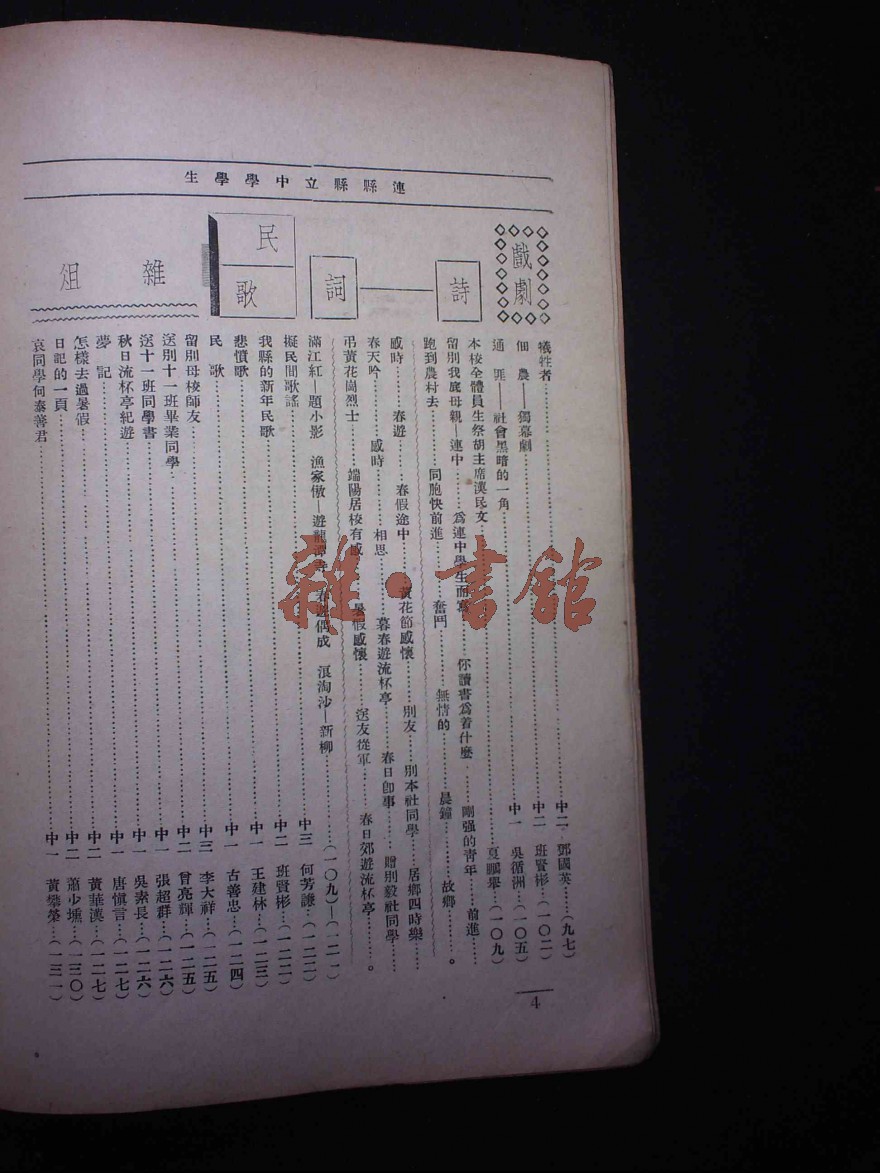 連縣縣立中學學生
戲劇
犧牲者……中二 鄧國英…(九七)
佃農——獨幕劇……中二 班賢彬…(一〇二)
通匪——社會黑暗的一角……中一 吳循洲…(一〇五)
詩——詞
本校全體員生祭胡主席漢民文……夏鵬舉…(一〇九)
留別我庭母親—連中……爲連中學生而寫……你讀書爲着什麼……剛强的青年……前進……
跑到農村去……同胞快前進……奮鬥……無情的……晨鐘……故鄉……。
感時……春遊……春假途中……黃花節感懷……別友……別本社同學……居鄉四時樂……
春天吟……感時……相思……暮春遊流杯亭……春日卽事……贈別毅社同學……
弔黃花崗烈士……端陽居校有感……暑假感懷……送友從軍……春日郊遊流杯亭……。
滿江紅—題小影 漁家傲—遊龍潭寺 春遊偶成 浪淘沙—新柳……(一〇九)—(一二一)
民歌
擬民間歌謠……中三 何芳謙…(一二二)
我縣的新年民歌……中二 班賢彬…(一二二)
悲憤歌……中一 王建林…(一二三)
民歌……中一 古善忠…(一二四)
雜俎
留別母校師友……中三 李大祥…(一二五)
送別十一班畢業同學……中二 曾亮輝…(一二五)
送十一班同學書……中一 張超群…(一二六)
秋日流杯亭紀遊……中一 吳素長…(一二六)
夢記……中一 唐愼言…(一二七)
怎樣去過暑假……中二 黃華漢…(一二七)
日記的一頁……中二 蕭少壎…(一三〇)
哀同學何泰菁君……中一 黃攀榮…(一三一)
4
雜·書館